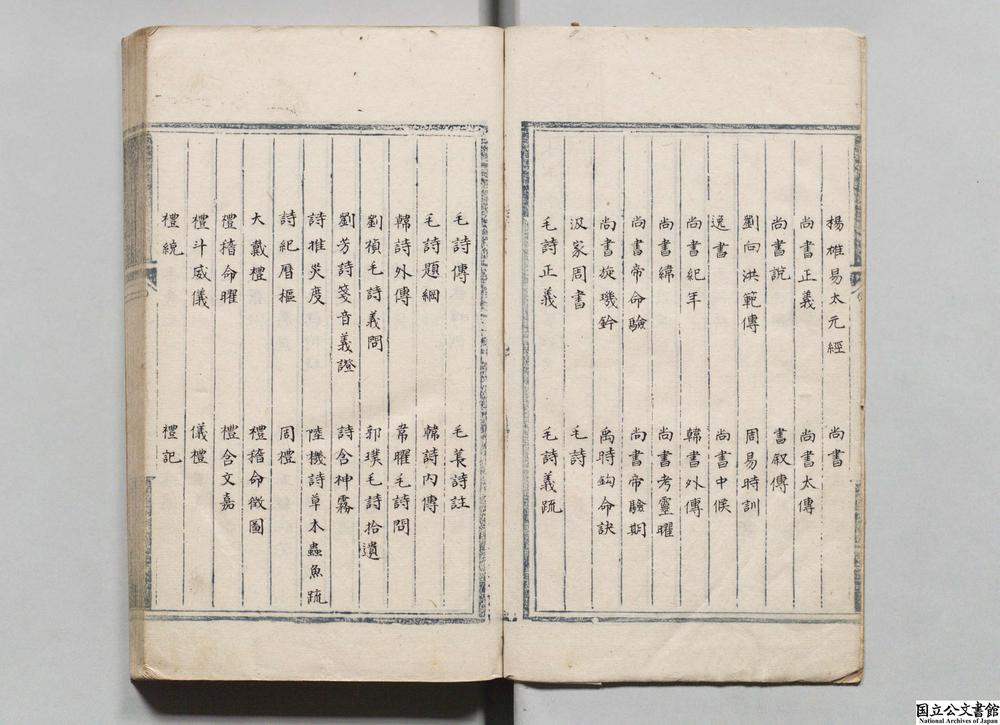 楊雄易太元經　尚書
尚書正義　尚書大傳
尚書說　書叙傳
劉向洪範傳　周易時訓
逸書　尚書中候
尚書紀年　韓書外傳
尚書緯　尚書考靈曜
尚書帝命驗　尚書帝驗期
尚書旋璣鈐　禹時鈎命訣
汲冢周書　毛詩
毛詩正義　毛詩義疏
毛詩傳　毛萇詩註
毛詩題綱　韓詩內傳
韓詩外傳　韋曜毛詩問
劉楨毛詩義問　郭璞毛詩拾遺
劉芳詩箋音義證　詩含神霧
詩推灾度　陸機詩草木蟲魚疏
詩紀曆樞　周禮
大戴禮　禮稽命徵圖
禮稽命曜　禮含文嘉
禮斗威儀　儀禮
禮統　禮記
国立公文書館
National Archives of Japan